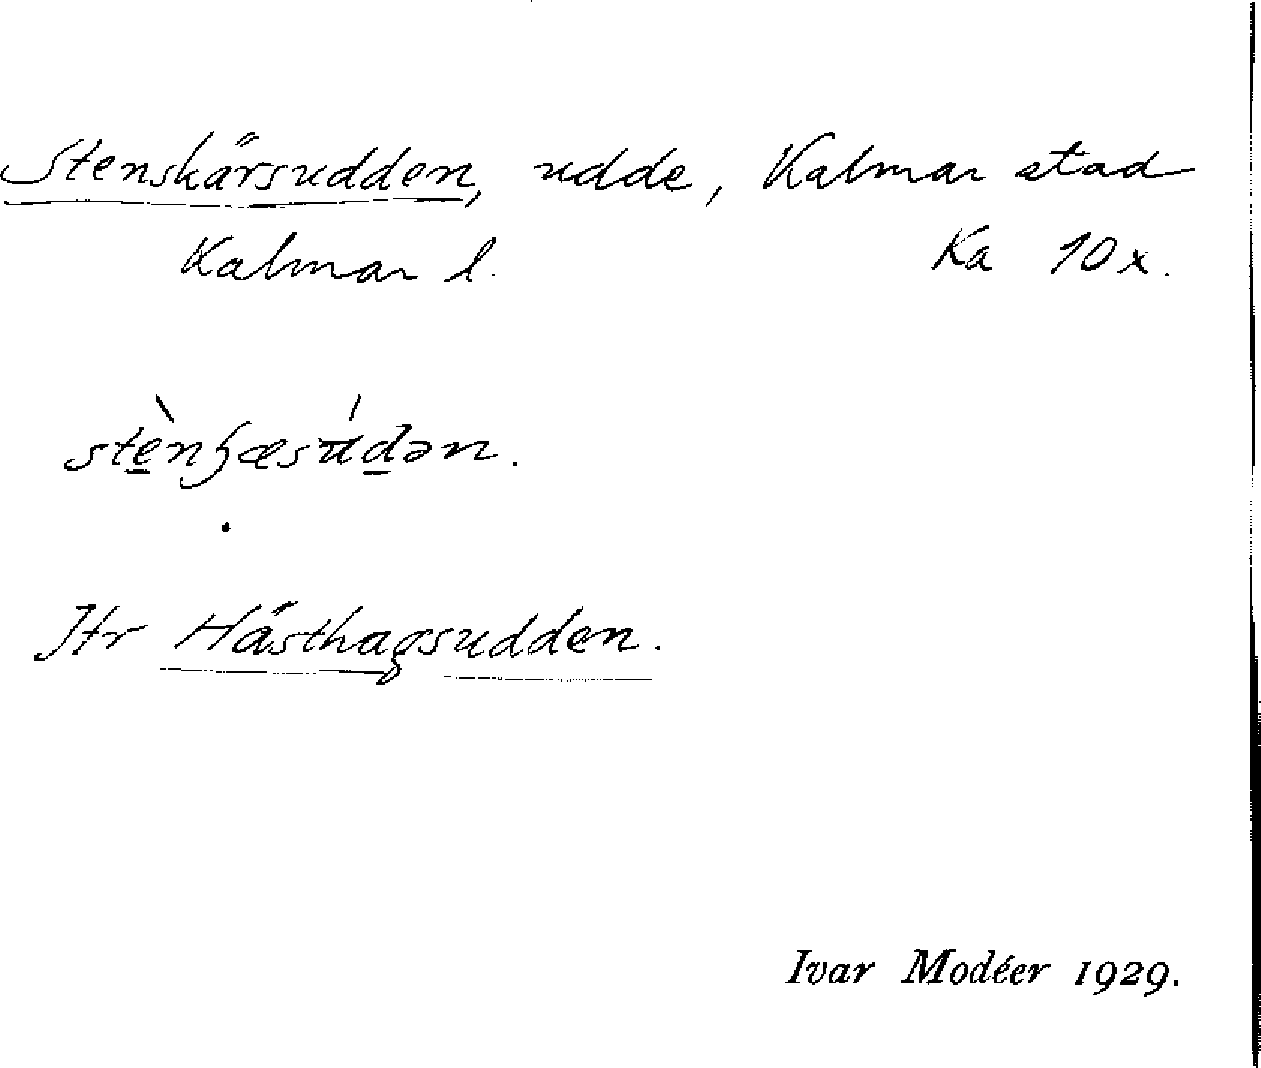 Stenskärsudden, udde, Kalmar stad
Kalmar l. Ka 10x.
stènꜧæsúdən.
Jfr Hästhagsudden.
Ivar Modéer 1929.